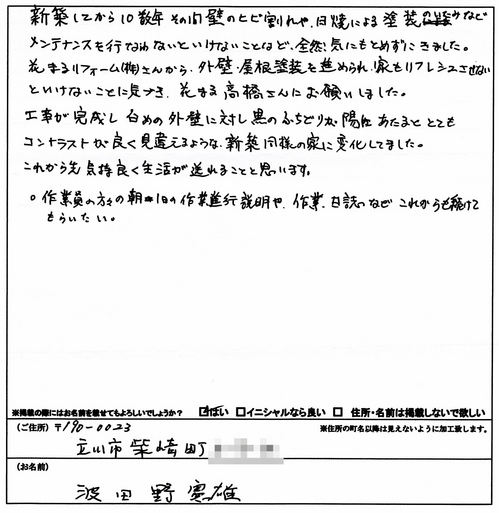 新築してから10数年 その間壁のヒビ割れや、日焼による塗装の染みなど
メンテナンスを行なわないといけないことなど、全然気にもとめずにきました。
花まるリフォーム(株)さんから、外壁・屋根塗装を進められ、家もリフレッシュさせない
といけないことに気づき、花まる高橋さんにお願いしました。
工事が完成し 白めの外壁に対し黒のふちどりが、陽にあたるととても
コントラストが良く見違えるような、新築同様の家に変化してました。
これから先気持良く生活が送れることと思います。
○作業員の方々の朝一日の作業進行説明や、作業日誌などこれからも続けて
もらいたい。
※掲載の際にはお名前を載せてもよろしいでしょうか? ☑はい □イニシャルなら良い □ 住所・名前は掲載しないで欲しい
(ご住所) 〒190-0023 ※住所の町名以降は見えないように加工致します。
立川市柴崎町
(お名前)
波田野寛雄